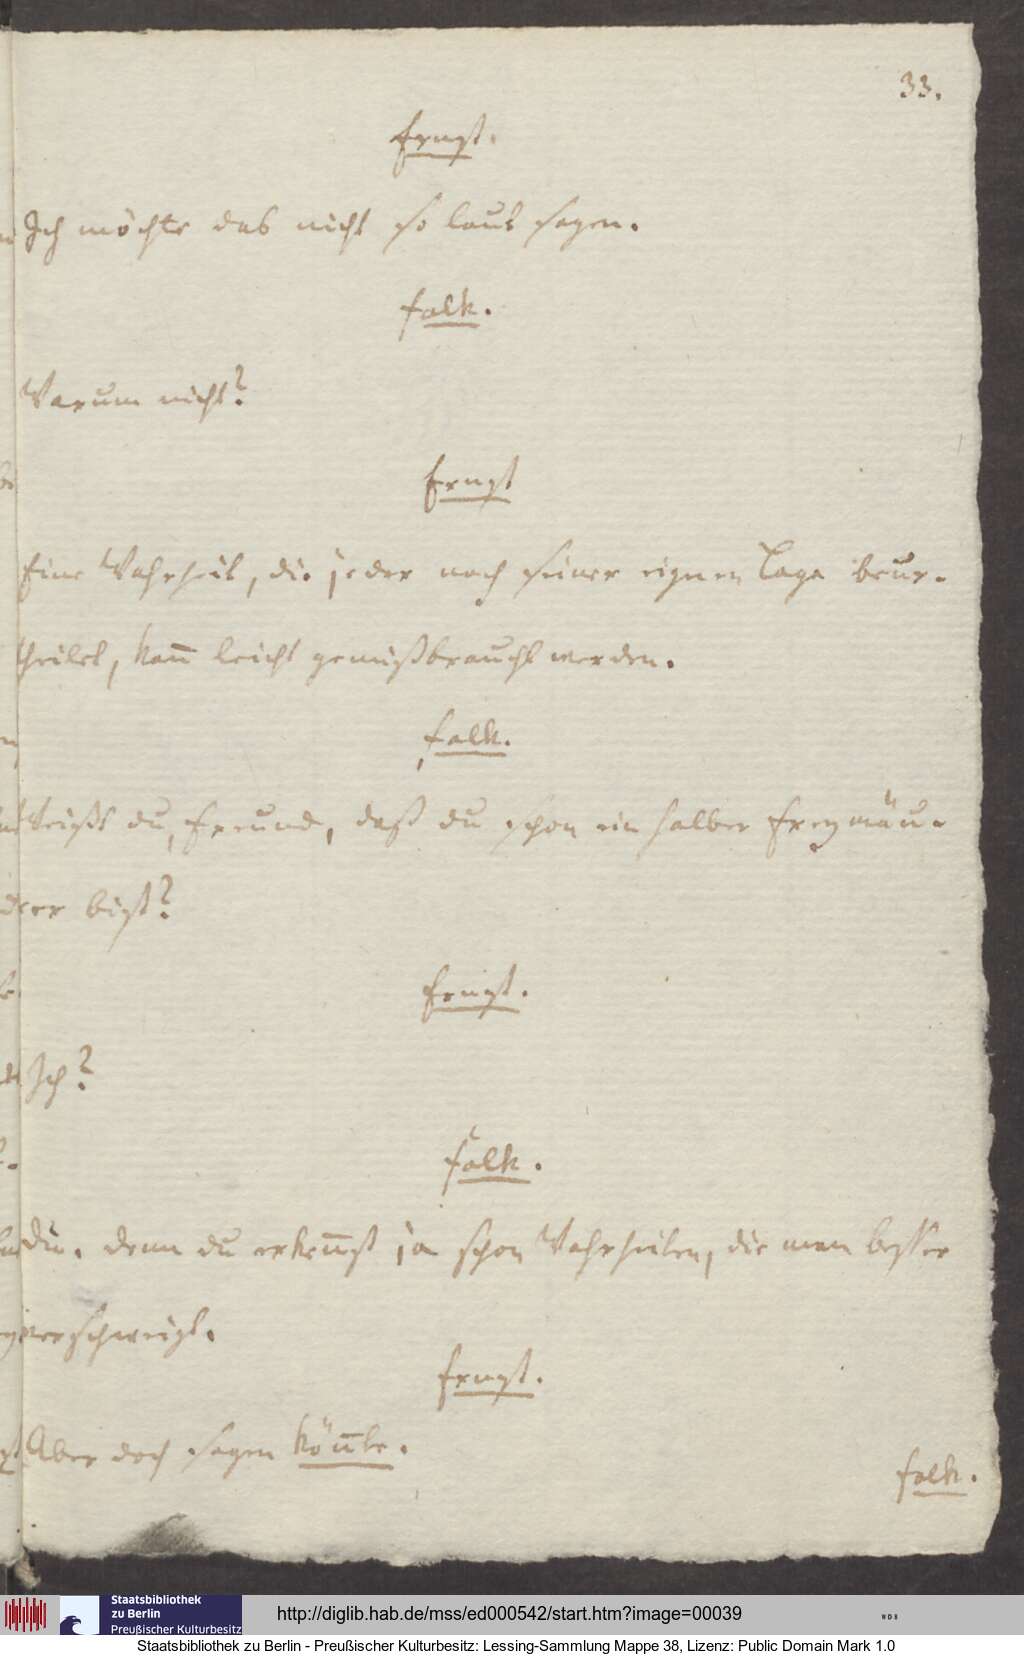 33.
Ernst.
Ich möchte das nicht so laut sagen.
Falk.
Warum nicht?
Ernst
Eine Wahrheit, die jeder nach seiner eignen Lage beur-
theilet, kañ leicht gemißbraucht werden.
Falk.
Weißt du, Freund, daß du schon ein halber Freymäu-
rer bist?
Ernst.
Ich?
Falk.
Du. denn du erkeñst ja schon Wahrheiten, die man besser
verschweigt.
Ernst.
Aber doch sagen köñte.
Falk.
Staatsbibliothek
zu Berlin
Preußischer Kulturbesitz
http://diglib.hab.de/mss/ed000542/start.htm?image=00039
WDB
Staatsbibliothek zu Berlin - Preußischer Kulturbesitz: Lessing-Sammlung Mappe 38, Lizenz: Public Domain Mark 1.0